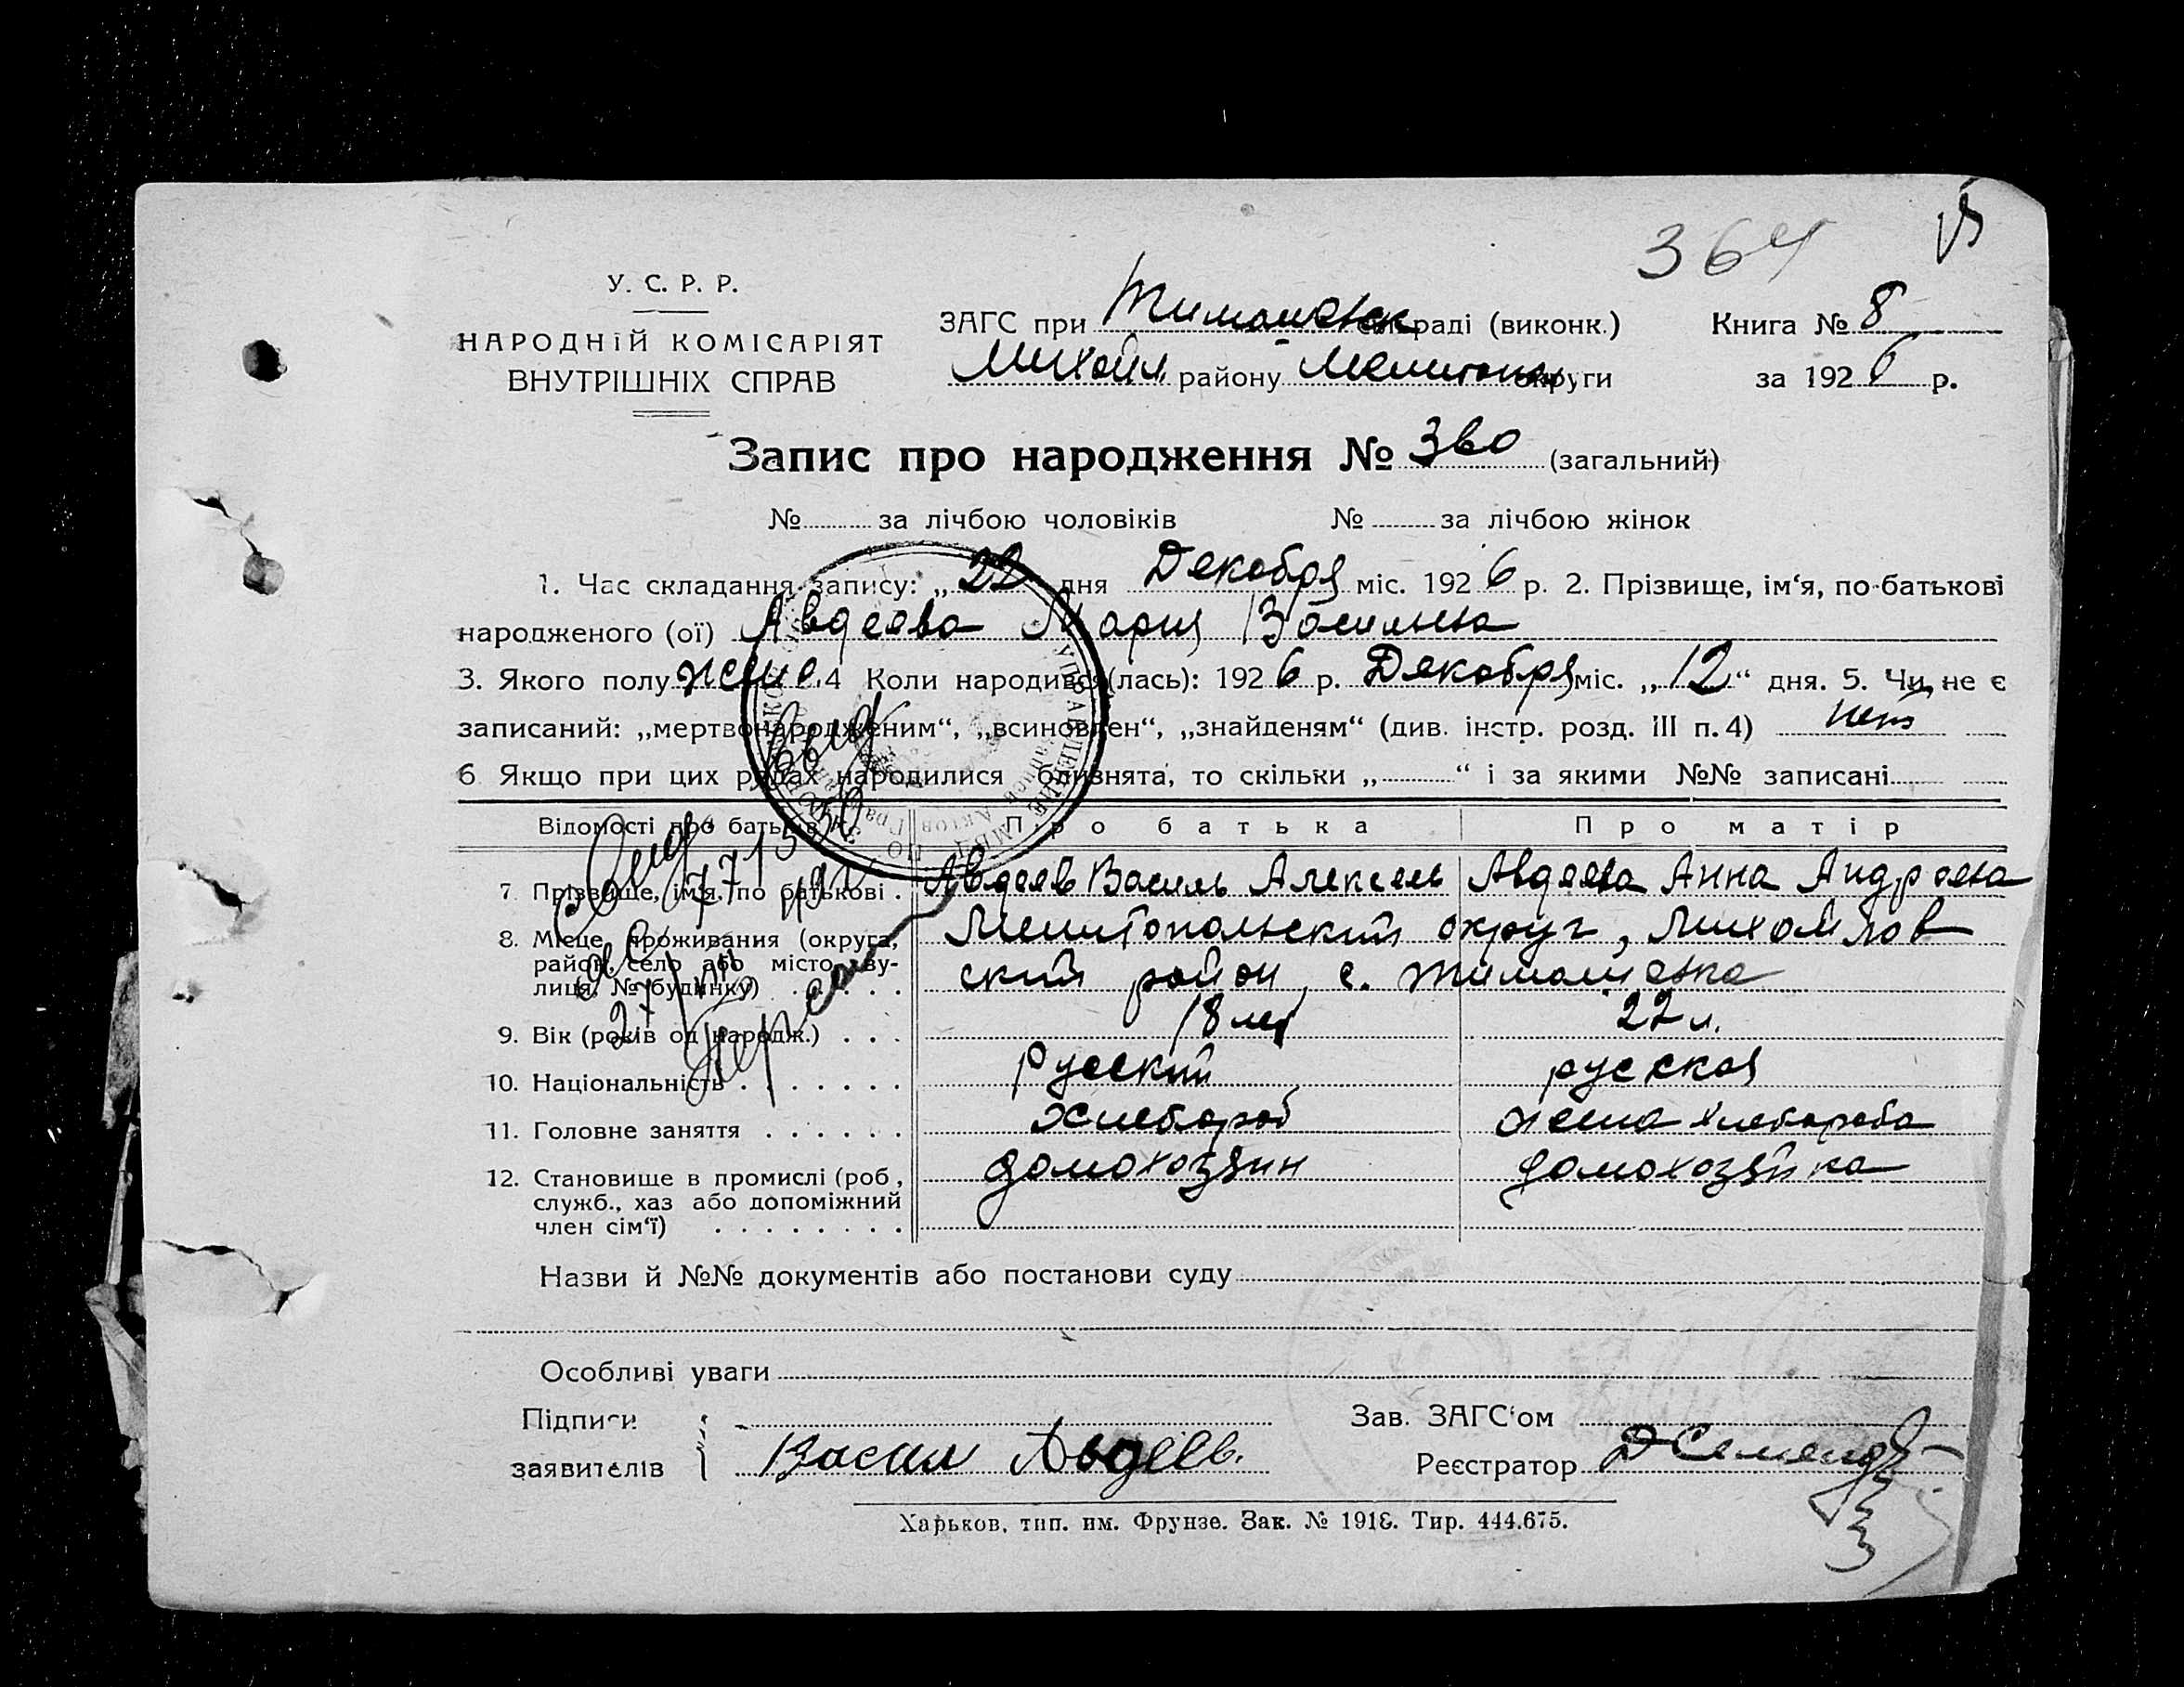 364
У. С. Р. Р.
НАРОДНІЙ КОМІСАРІЯТ
ВНУТРІШНІХ СПРАВ
ЗАГС при Тимошевск раді (виконк.) Книга № 8
Михайл. району Мелитопол округи за 1926 р.
Запис про народження № 360 (загальний)
№ за лічбою чоловіків № за лічбою жінок
1. Час складання запису: „22“ дня Декабря міс. 1926 р. 2. Прізвище, ім‘я, по-батькові
народженого (ої) Авдеева Мария Васильева
3. Якого полу жен. 4 Коли народився(лась): 1926 р. Декабря міс. „12“ дня. 5. Чи не є
записаний: „мертвонародженим“, „всиновлен“, „знайденям“ (див. інстр. розд. III п. 4) нет
6 Якщо при цих родах народилися близнята, то скільки „ “ і за якими №№ записані
Відомості про батьків Про батька Про матір
7 Прізвище, ім‘я, по батькові . Авдеев Василь Алексеев Авдеева Анна Андреева
8. Місце проживання (округа, Мелитопольский округ, Михайлов
район, село або місто, ву- ский район, с. Тимошевка
лиця, № будинку)
9. Вік (років од народж.) . . . 18 лет 22 л.
10. Національність . . . . . . . Русский русская
11. Головне заняття . . . . . . Хлебороб жена хлебороба
12. Становище в промислі (роб., домохозяин домохозяйка
служб., хаз або допоміжний
член сім‘ї) . . . . . . . .
Назви й №№ документів або постанови суду
Особливі уваги
Підписи Зав. ЗАГС‘ом
заявителів Васил Авдеев. Реєстратор
Харьков, тип. им. Фрунзе. Зак. № 1918. Тир. 444.675.